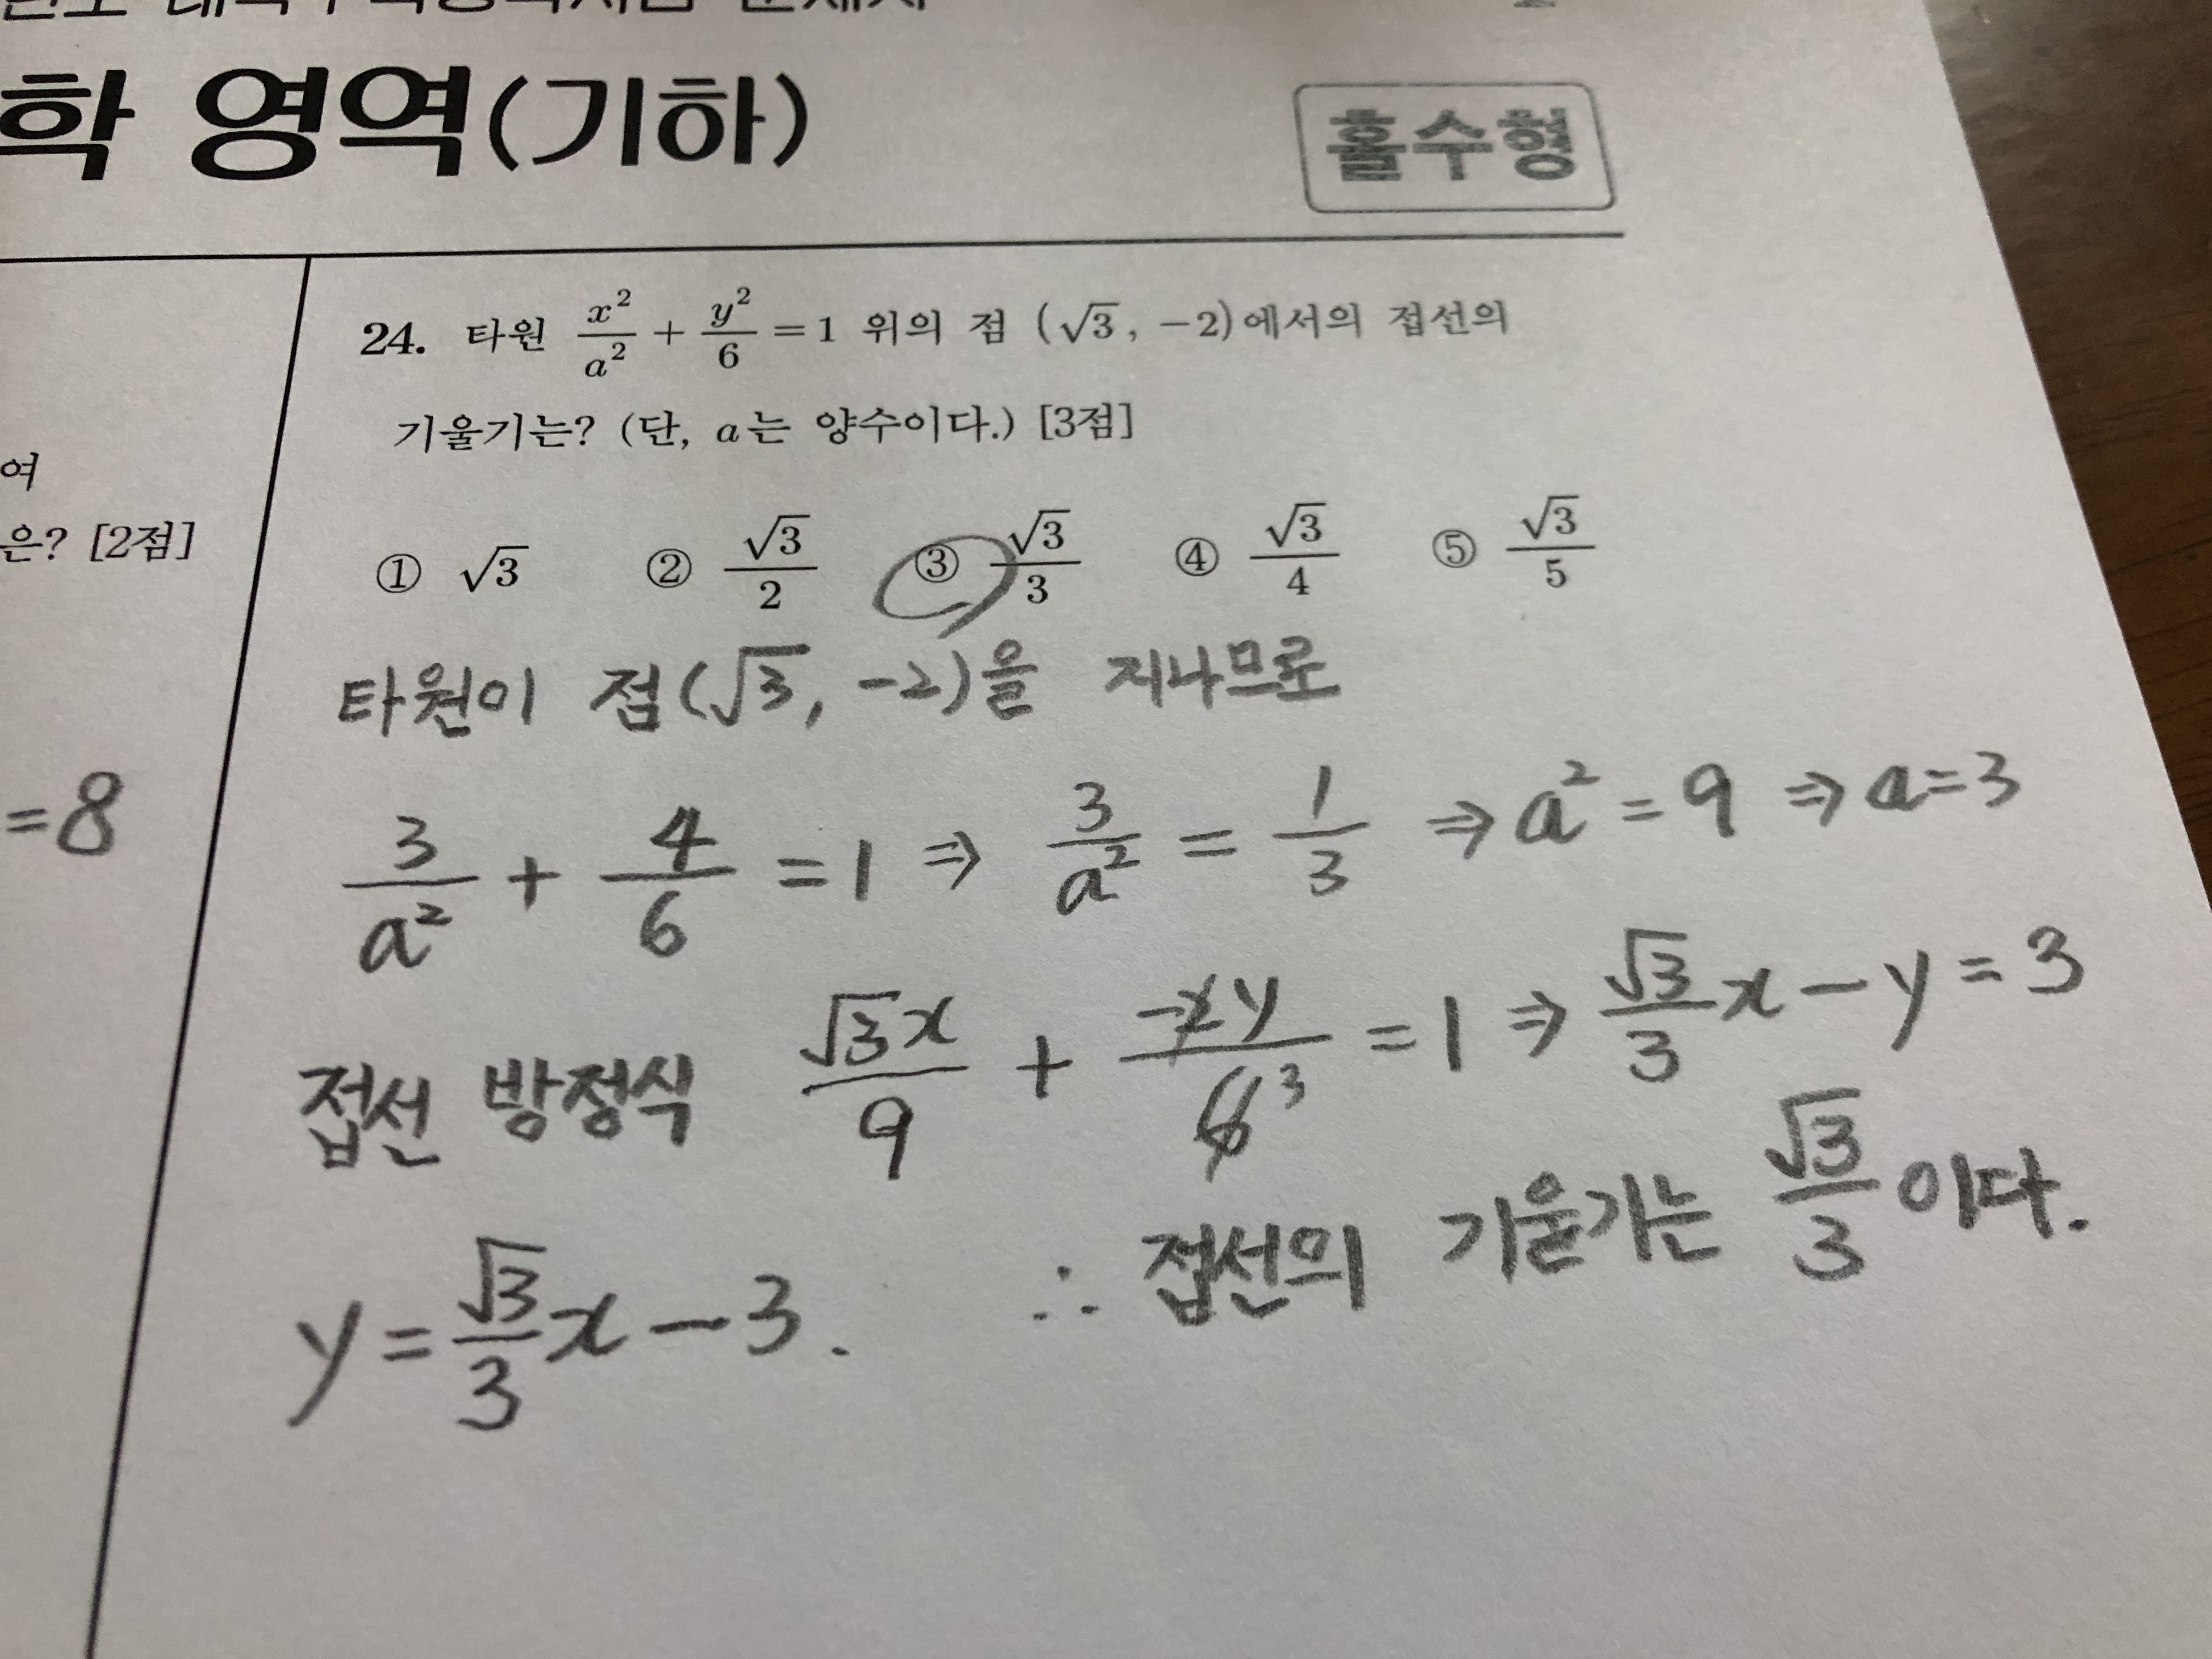 학 영역(기하)
홀수형
여
은? [2점]
=8
24. 타원 x²/a² + y²/6 = 1 위의 점 (√3, −2)에서의 접선의
기울기는? (단, a는 양수이다.) [3점]
① √3 ② √3/2 ③ √3/3 ④ √3/4 ⑤ √3/5
타원이 점(√3, -2)을 지나므로
3/a² + 4/6 = 1 ⇒ 3/a² = 1/3 ⇒ a² = 9 ⇒ a=3
접선 방정식 √3x/9 + -2y/6 3 = 1 ⇒ √3/3 x - y = 3
y = √3/3 x - 3. ∴ 접선의 기울기는 √3/3 이다.